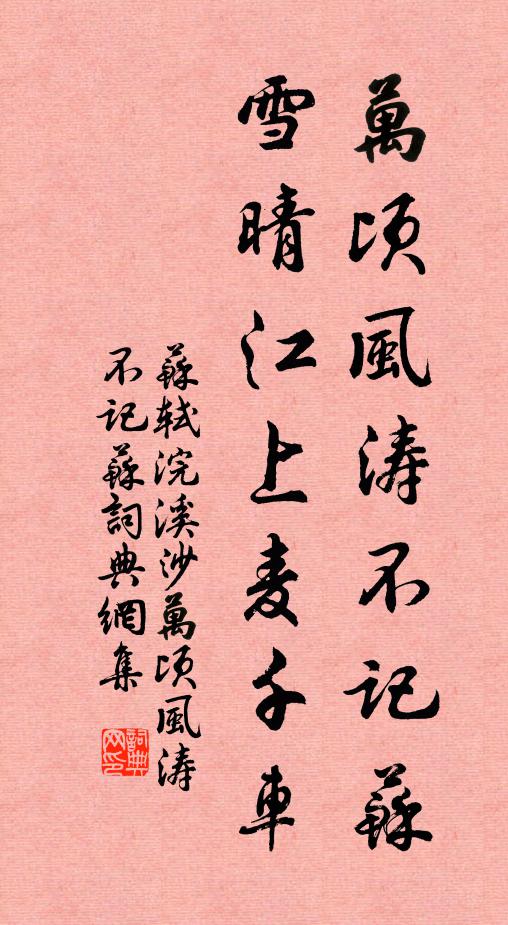 萬頃風涛不记蘇
雪晴江上麦千車
蘇轼浣溪沙萬頃風涛
不记蘇詞典網集
詞典网印